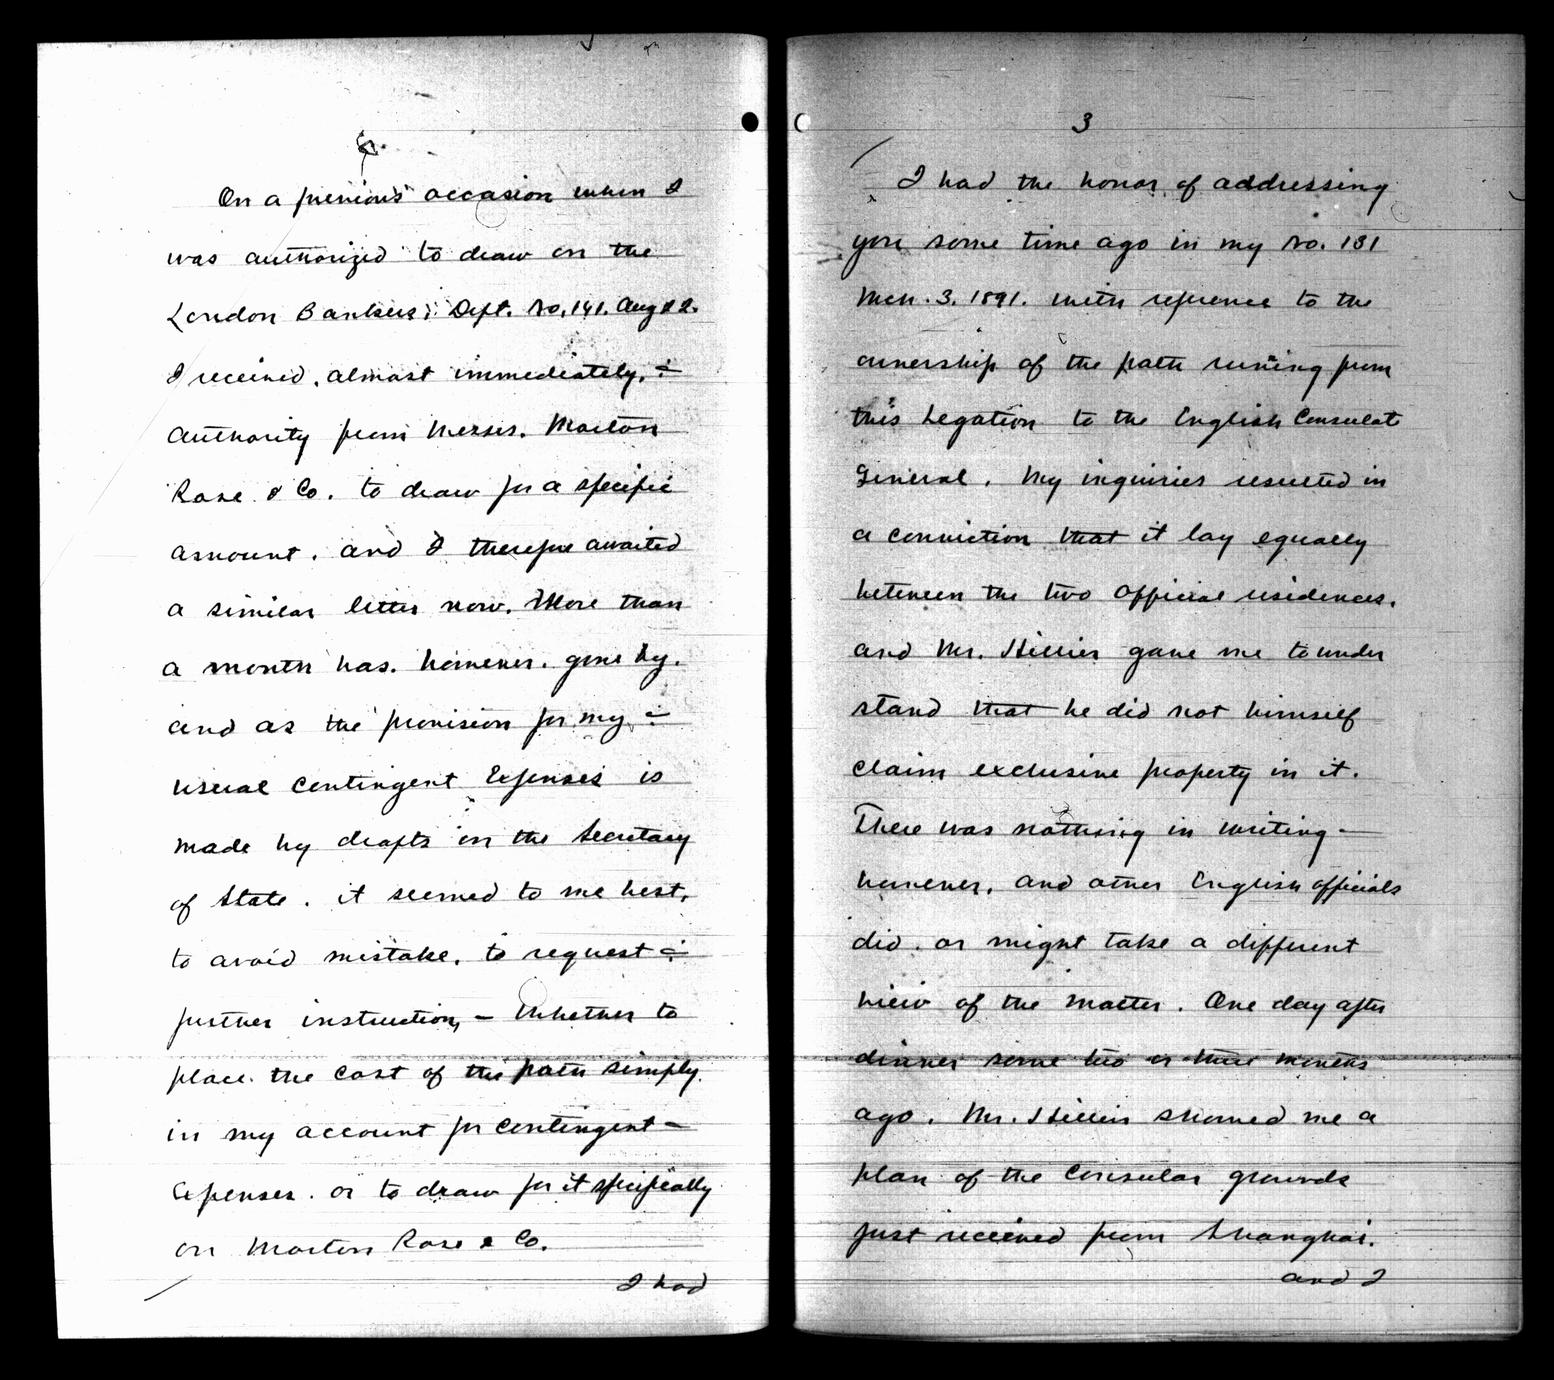 On a previous occasion when I
was authorized to draw on the
London Bankers; Dept. No. 141. Aug 22.
I received, almost immediately, -
authority from Messrs. Morton
Rose & Co. to draw for a specific
amount. and I therefore awaited
a similar letter now. More than
a month has. however. gone by.
and as the provision for my -
usual contingent Expenses is
made by drafts on the Secretary
of State. it seemed to me best,
to avoid mistake, to request -
further instruction, - Whether to
place the cost of this path simply
in my account for contingent -
Expenses. or to draw for it specifically
on Morton Rose & Co.
I had
3
I had the honor of addressing
you some time ago in my No. 131
Mch. 3. 1891. with reference to the
ownership of the path runing from
this Legation to the English Consulate
General. My inquiries resulted in
a conviction that it lay equally
between the two official residences.
and Mr. Hillier gave me to under
stand that he did not himself
claim exclusive property in it.
There was nothing in writing -
however, and other English officials
did. or might take a different
view of the matter. One day after
dinner some two or three months
ago. Mr. Hillier showed me a
plan of the Consular grounds
just received from Shanghai.
and I